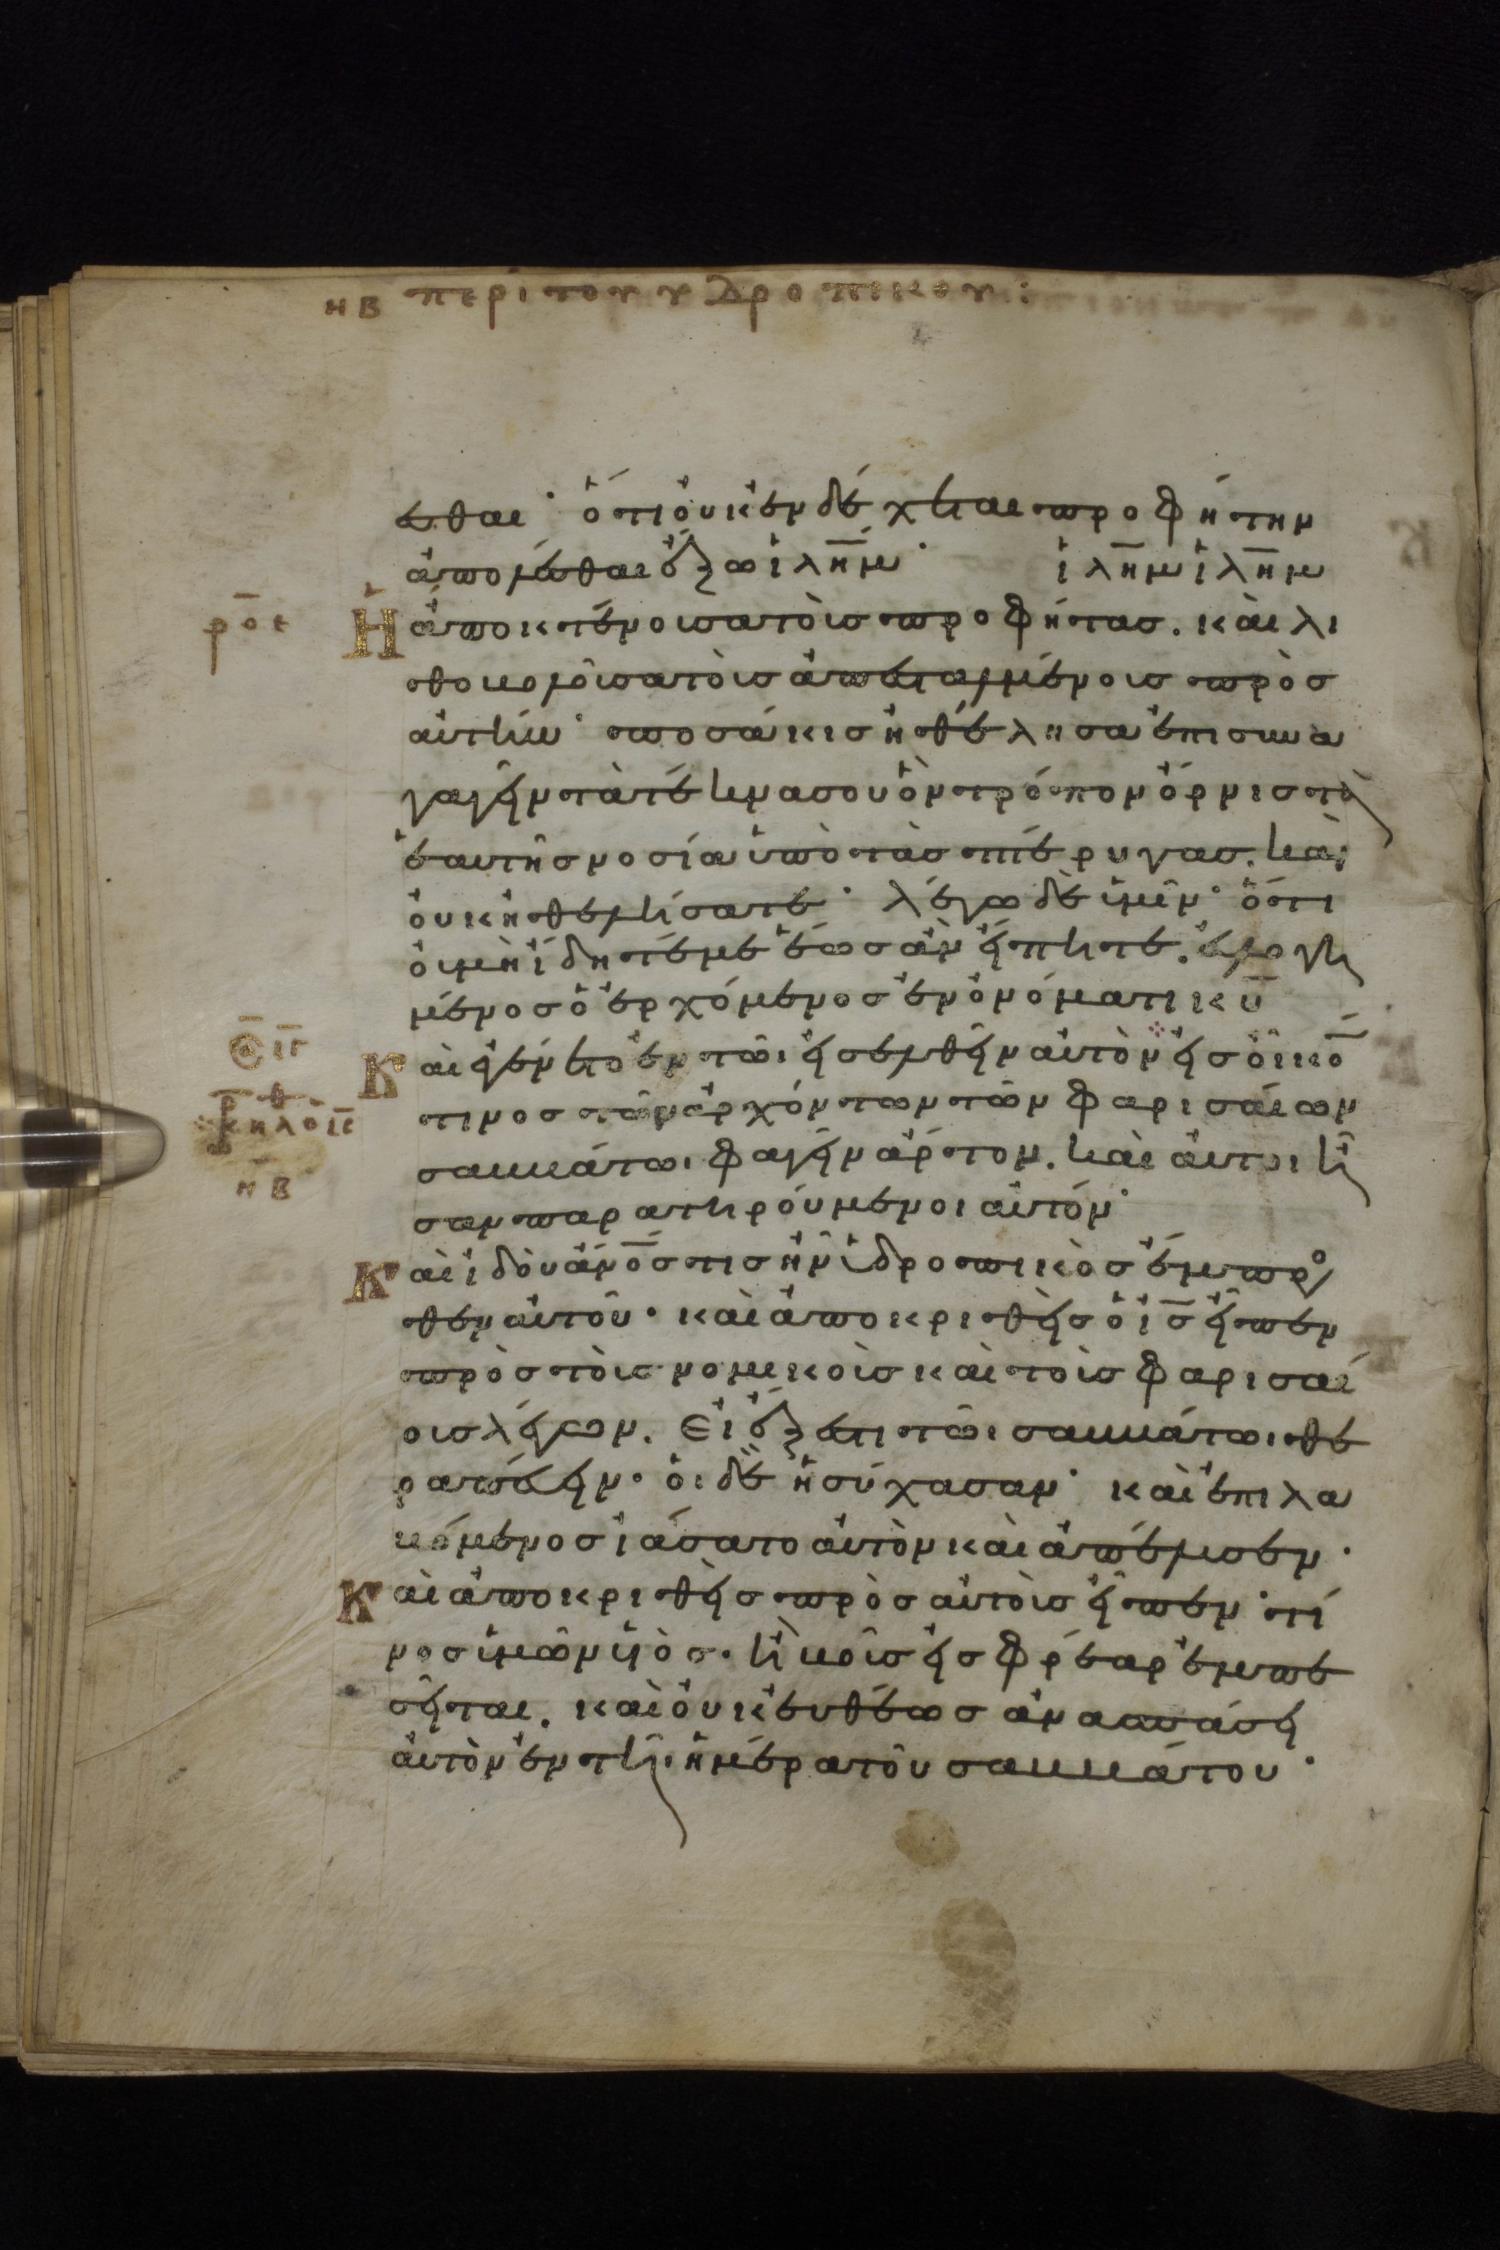 ΝΒ περὶ τοῦ ὑδρωπικοῦ:
εσθαι· ὅτι οὐκ ἐνδέχεται προφήτην
ἀπολέσθαι ἔξω ἰλη̅μ· ἰλη̅μ ἰλη̅μ
ρ̅ο̅ε
Ἡ ἀποκτένουσα τοὺς προφήτας. καὶ λι
θοβολοῦσα τοὺς ἀπεσταλμένους πρὸς
αὐτήν· ποσάκις ἠθέλησα ἐπισυνα
γαγεῖν τὰ τέκνα σου ὃν τρόπον ὄρνις τὴ
ἑαυτῆς νοσίαν ὑπὸ τὰς πτέρυγας. καὶ
οὐκ ἠθελήσατε· λέγω δὲ ὑμῖν· ὅτι
οὐ μὴ ἴδητέ με ἕως ἂν εἴπητε. εὐλογη
μένος ὁ ἐρχόμενος ἐν ὀνόματι κυ̅
Καὶ ἐγένετο ἐν τῶι εἰσελθεῖν αὐτὸν εἰς οἶκο̅
τινος τῶν ἀρχόντων τῶν φαρισαίων
σαββάτωι φαγεῖν ἄρτον. καὶ αὐτοι ἦ
σαν παρατηρούμενοι αὐτόν·
ΝΒ
Καὶ ἰδοὺ ἀνο̅ς τις ἦν ὑδροπικὸς ἔμπρο
θεν αὐτοῦ· καὶ ἀποκριθεὶς ὁ ι̅ς εἶπεν
πρὸς τοὺς νομικοὺς καὶ τοὺς φαρισαί
ους λέγων. Εἰ ἔξεστι τῶι σαββάτωι θε
ραπεύειν· οἱ δὲ ἡσύχασαν· καὶ ἐπιλα
βόμενος ἰάσατο αὐτὸν καὶ ἀπέλυσεν·
Καὶ ἀποκριθεὶς πρὸς αὐτοὺς εἶπεν· τί
νος ὑμῶν υἱὸς. ἢ βοῦς εἰς φρέαρ ἐμπε
σεῖται. καὶ οὐκ εὐθέως ἀνασπάσει
αὐτὸν ἐν τῆι ἡμέρα τοῦ σαββάτου·